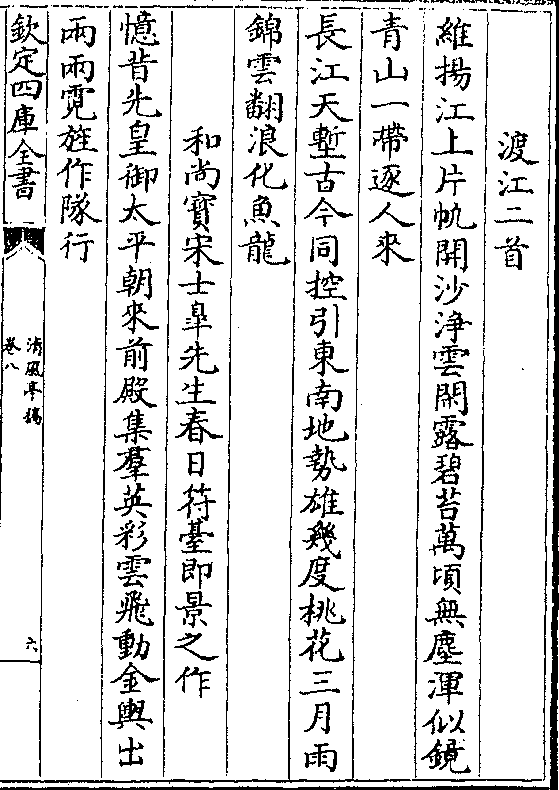 渡江二首
維揚江上片帆開沙淨雲閑露碧苔萬頃無塵渾似鏡
青山一帶逐人來
長江天塹古今同控引東南地勢雄幾度桃花三月雨
錦雲翻浪化魚龍
和尚寳宋士臯先生春日符臺即景之作
憶昔先皇御太平朝來前殿集羣英彩雲飛動金輿出
兩兩霓旌作隊行
欽定四庫全書
清風亭稿
卷八
六